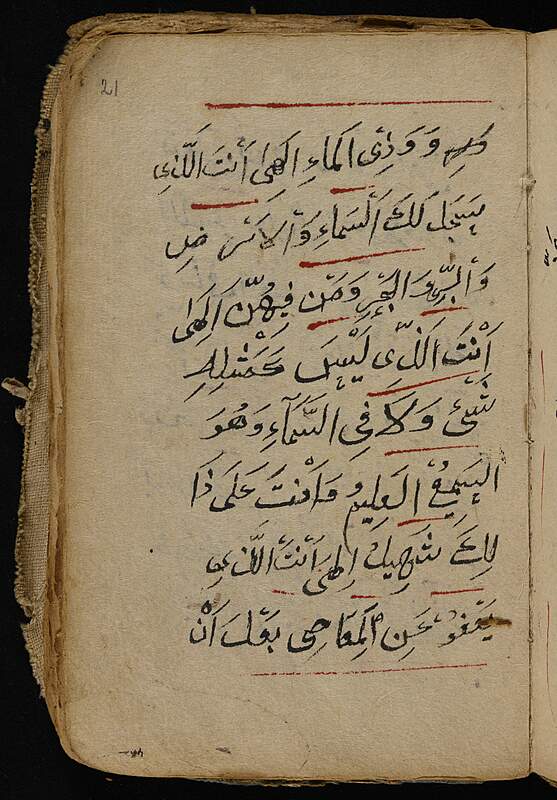 21
وَوَذِى اَلمَاءِ اِلَهِى أَنْتَ اللَّذِى
يَسْجَل لَكَ اَلْسَمَاءِ وَاْلاَرْ ضِ
وَاْلبَرِّ وَ البَحْرِ وَمَنْ فِيْهِنَّ اِلَهِى
أَنْتَ اَلَّذِى لَيْسَ كَمِثْلِهِ
شَىْئ وَلَا فِى السَّمَآءِ وَهُوَ
السَمِيْعُ اَلعَلِيمُ وَاَنْتَ عَلَى ذَا
لِكَ شَهِيدٌ اِلهِى أَنْتَ اللَّذِى
يَعْفُوْ عَنِ اَلمَعَاصِى بَعْدَ أَنْ